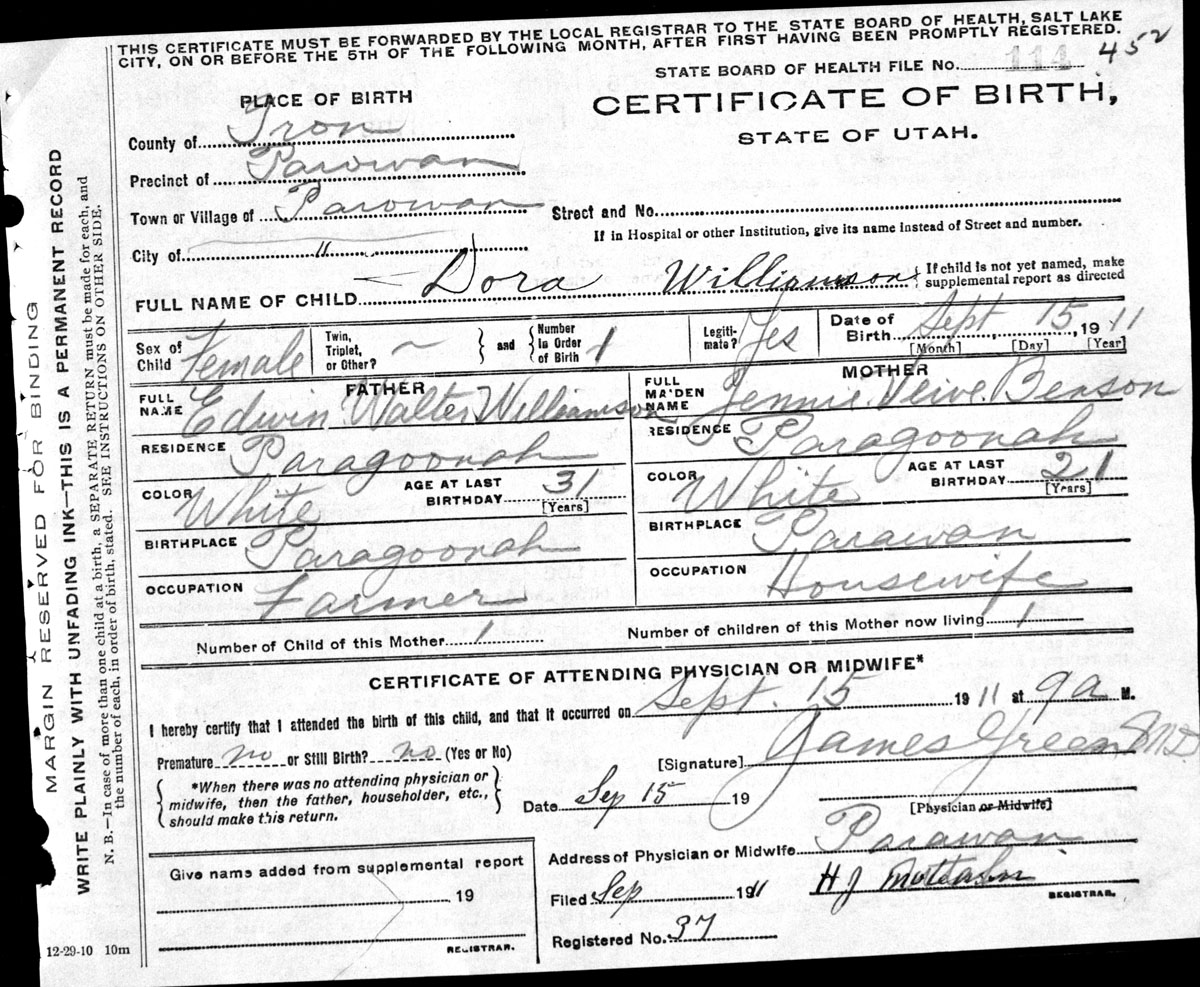 THIS CERTIFICATE MUST BE FORWARDED BY THE LOCAL REGISTRAR TO THE STATE BOARD OF HEALTH, SALT LAKE
CITY, ON OR BEFORE THE 5TH OF THE FOLLOWING MONTH, AFTER FIRST HAVING BEEN PROMPTLY REGISTERED.
STATE BOARD OF HEALTH FILE NO. 114 452
PLACE OF BIRTH
CERTIFICATE OF BIRTH,
STATE OF UTAH.
County of Iron
Precinct of Parowan
Town or Village of Parowan
Street and No.
If in Hospital or other Institution, give its name instead of Street and number.
City of "
FULL NAME OF CHILD Dora Williamson
{ If child is not yet named, make
supplemental report as directed
Sex of Child Female
Twin, Triplet, or Other? ~
and
Number in Order of Birth 1
Legiti-mate? Yes
Date of Birth Sept 15, 1911
[Month] [Day] [Year]
FATHER
MOTHER
FULL NAME Edwin Walter Williamson
FULL MAIDEN NAME Jennie Benson
RESIDENCE Paragoonah
RESIDENCE Paragoonah
COLOR White AGE AT LAST BIRTHDAY 31 [Years]
COLOR White AGE AT LAST BIRTHDAY 21 [Years]
BIRTHPLACE Paragoonah
BIRTHPLACE Parawan
OCCUPATION Farmer
OCCUPATION Housewife
Number of Child of this Mother 1
Number of children of this Mother now living 1
CERTIFICATE OF ATTENDING PHYSICIAN OR MIDWIFE*
I hereby certify that I attended the birth of this child, and that it occurred on Sept. 15 1911 at 9 a M.
Premature no or Still Birth? no (Yes or No)
[Signature] James Green M.D.
{ *When there was no attending physician or
midwife, then the father, householder, etc.,
should make this return. }
Date Sep 15 19
[Physician or Midwife]
Address of Physician or Midwife Parawan
Give name added from supplemental report
19
REGISTRAR.
Filed Sep 1911 H J
REGISTRAR.
Registered No. 37
12-29-10 10m
MARGIN RESERVED FOR BINDING
WRITE PLAINLY WITH UNFADING INK—THIS IS A PERMANENT RECORD
N. B.—In case of more than one child at a birth, a SEPARATE RETURN must be made for each, and
the number of each, in order of birth, stated. SEE INSTRUCTIONS ON OTHER SIDE.